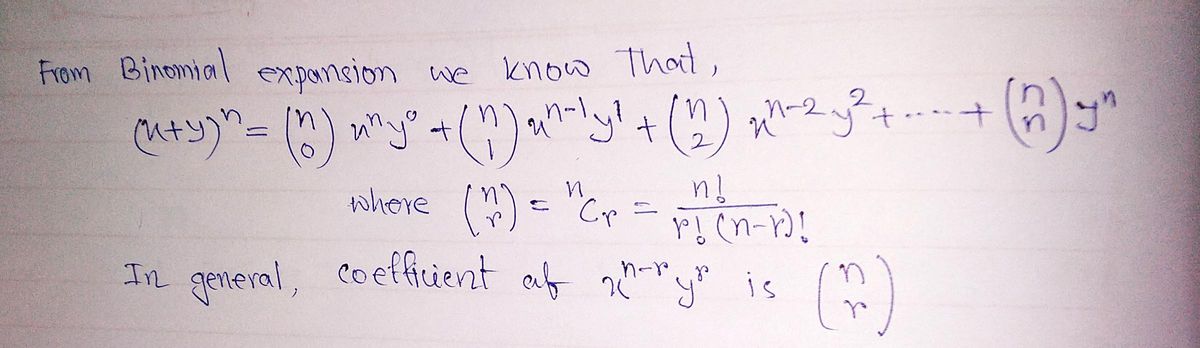 From Binomial expansion we know That,
(x+y)ⁿ = (n 0) xⁿy⁰ + (n 1) xⁿ⁻¹y¹ + (n 2) xⁿ⁻²y² + ----- + (n n) yⁿ
where (n r) = ⁿCᵣ = n! / r! (n-r)!
In general, coefficient of xⁿ⁻ʳ yʳ is (n r)